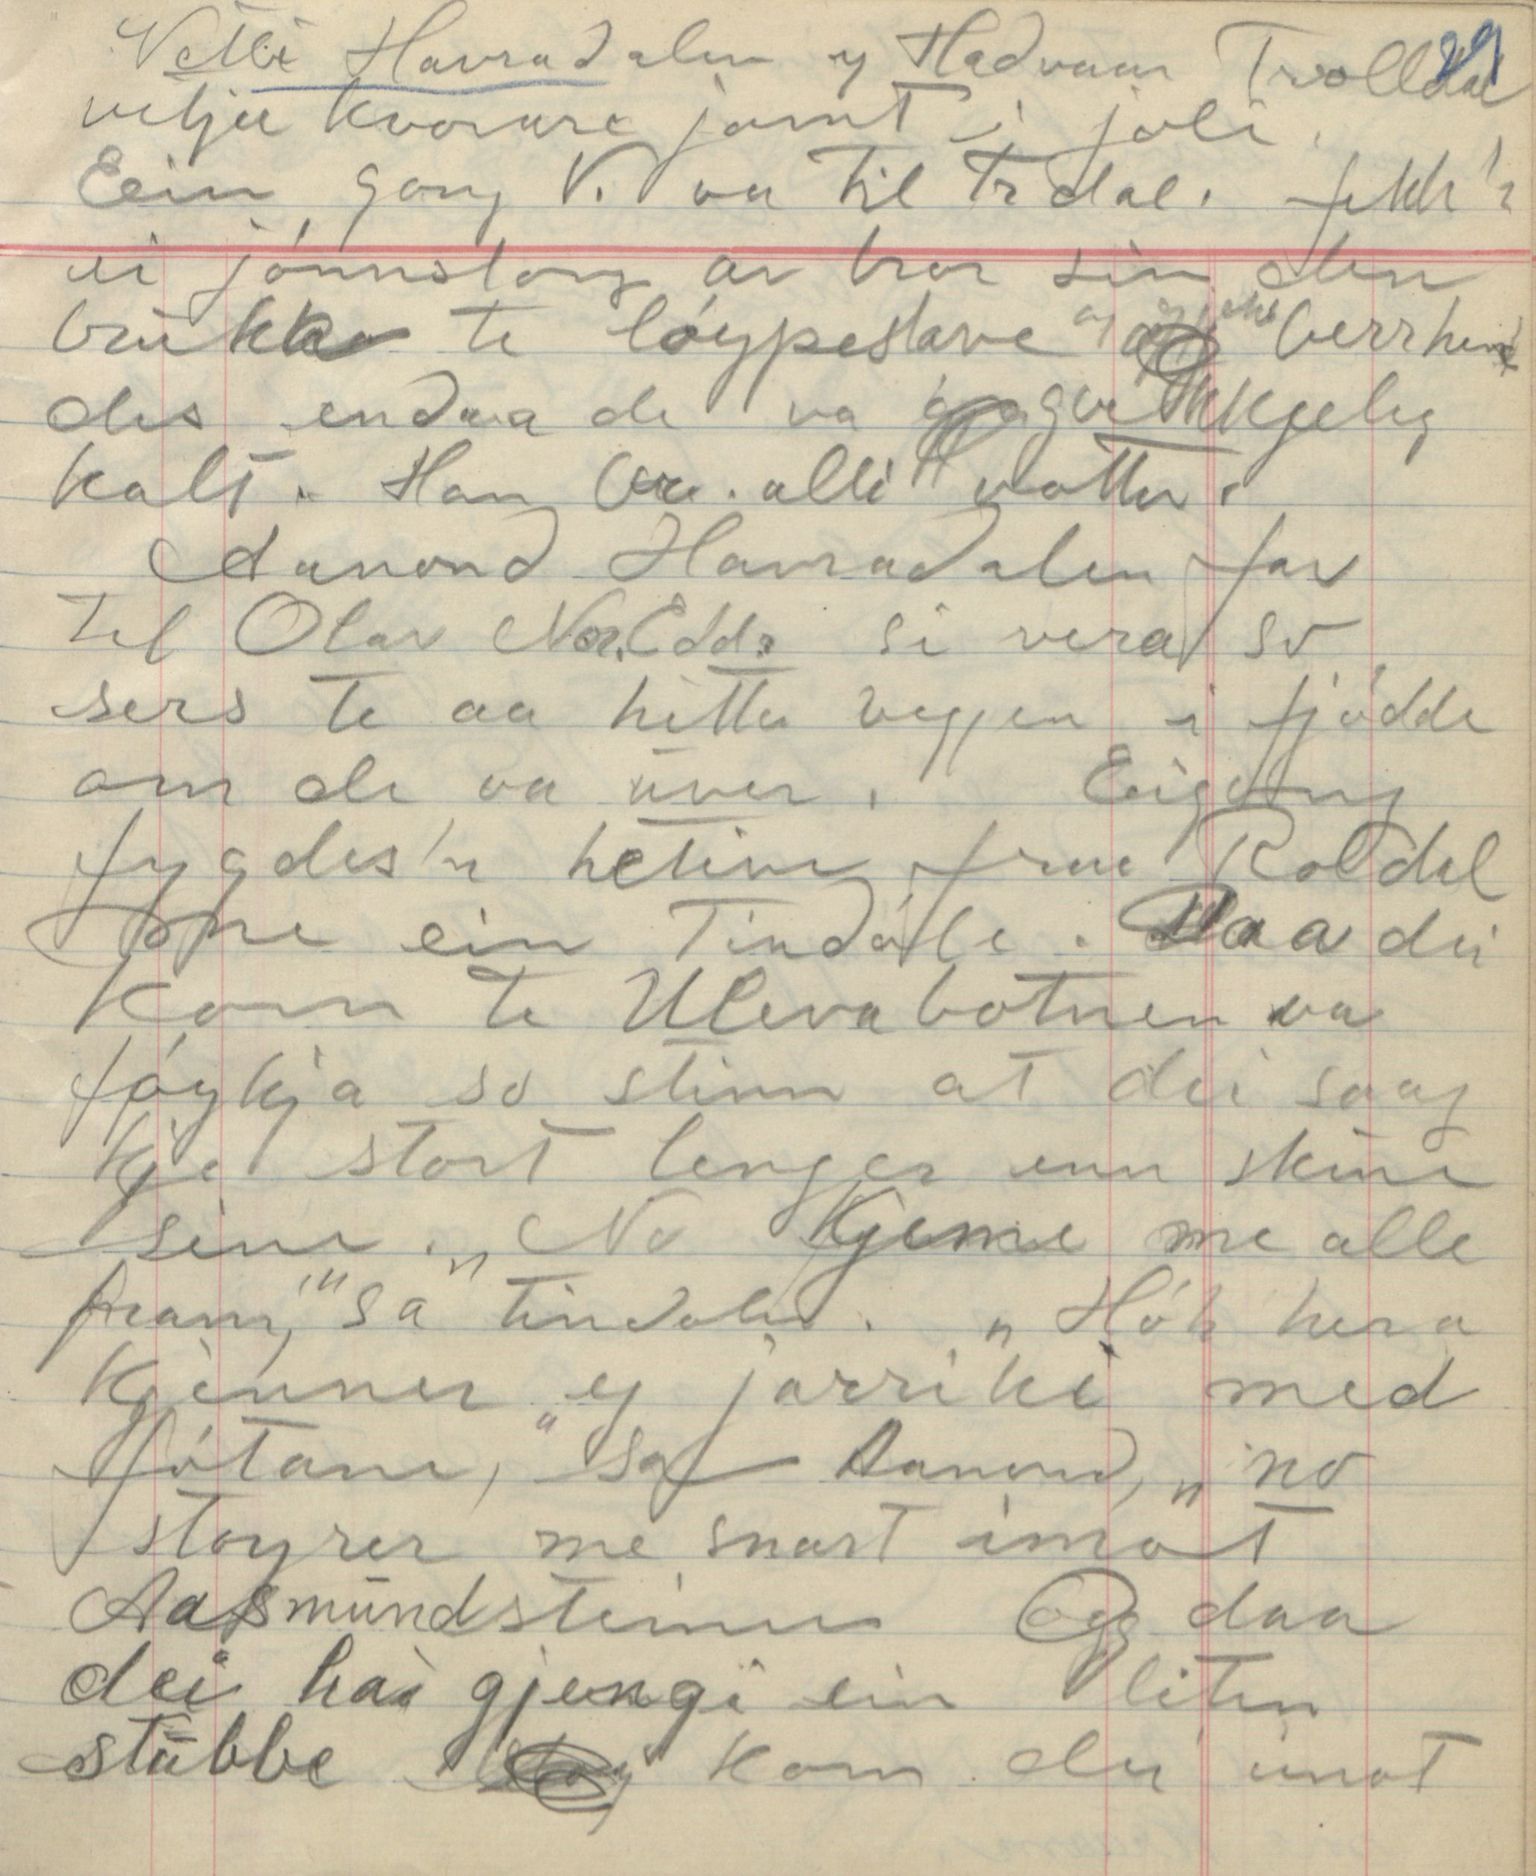 29
Vetli Havradalen og Hadvaar Trolldal
vitja kvorare jamt i joli.
Eein gong V. va til Trdal. fekk'n
ei jönnstong av bror sin den
brukka te löypestave og gjekk berrhen
des endaa de va gagnikkjeleg
kalt. Han bru. alli votter.
Aanond Havradalen far
til Olav Nor.Edd. si vera so
sers te aa hitta vegjen i fjödde
om de va uver. Eigong
fygdes'n heim frae Roldal
me ein Tindöle. Daa dei
kom te Ulevabotnen va
föykja so stinn at dei saag
kje stort lenger enn skine
sine. „No kjeme me alle
fram," sa tindolen. „Höh hera
kjenner eg jarriki med
fötane," sa Aanond, „no
støyrer me snart imot
Aasmundsteinen Og daa
dei hai gjengi ein liten
stubbe kom dei imot